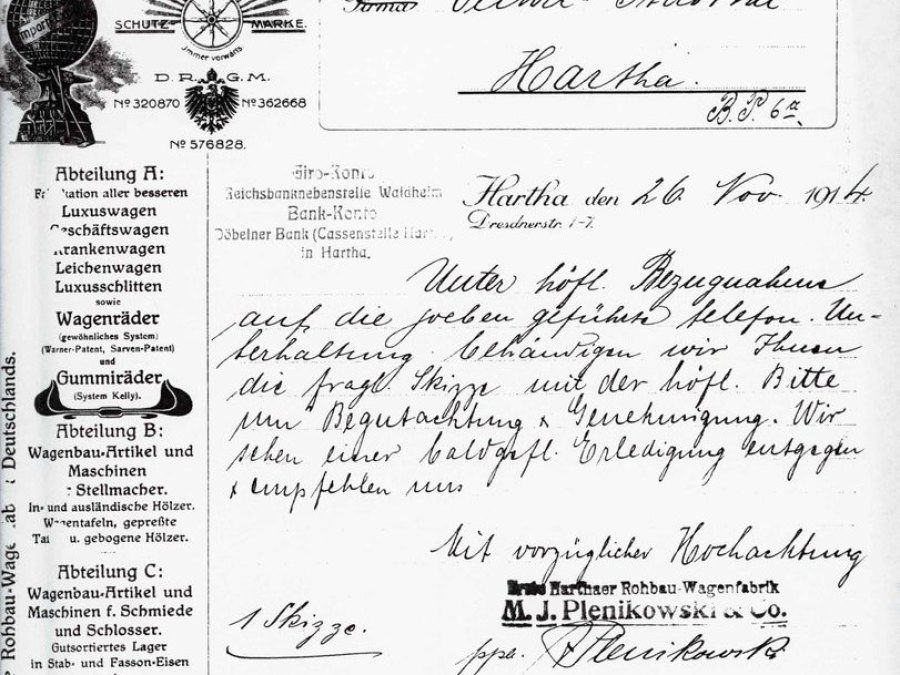 SCHUTZ-MARKE.
Immer vorwärts
D. R. G. M.
No 320870 No 362668
No 576828.
Firma
Hartha.
B. P. 6a.
Abteilung A:
aller besseren
Luxuswagen
Geschäftswagen
Krankenwagen
Leichenwagen
Luxusschlitten
sowie
Wagenräder
(gewöhnliches System)
(Warner-Patent, Sarven-Patent)
und
Gummiräder
(System Kelly).
Abteilung B:
Wagenbau-Artikel und
Maschinen
Stellmacher.
In- und ausländische Hölzer.
Wagentafeln, gepreßte
u. gebogene Hölzer.
Abteilung C:
Wagenbau-Artikel und
Maschinen f. Schmiede
und Schlosser.
Gutsortiertes Lager
in Stab- und Fasson-Eisen
Rohbau-Wage Deutschlands.
Giro-Konto
Reichsbanknebenstelle Waldheim
Bank-Konto
Döbelner Bank (Cassenstelle
in Hartha.
Hartha den 26 Nov. 1914.
Dresdnerstr. 1-7.
Unter höfl. Bezugnahme
auf die soeben geführte telefon. Un-
terhaltung behändigen wir Ihnen
die fragl. Skizze mit der höfl. Bitte
um Begutachtung & Genehmigung. Wir
sehen einer baldgefl. Erledigung entgegen
& empfehlen uns
Mit vorzüglicher Hochachtung
Erste Harthaer Rohbau-Wagenfabrik
M. J. Plenikowski & Co.
1 Skizze.
ppa. Plenikowski